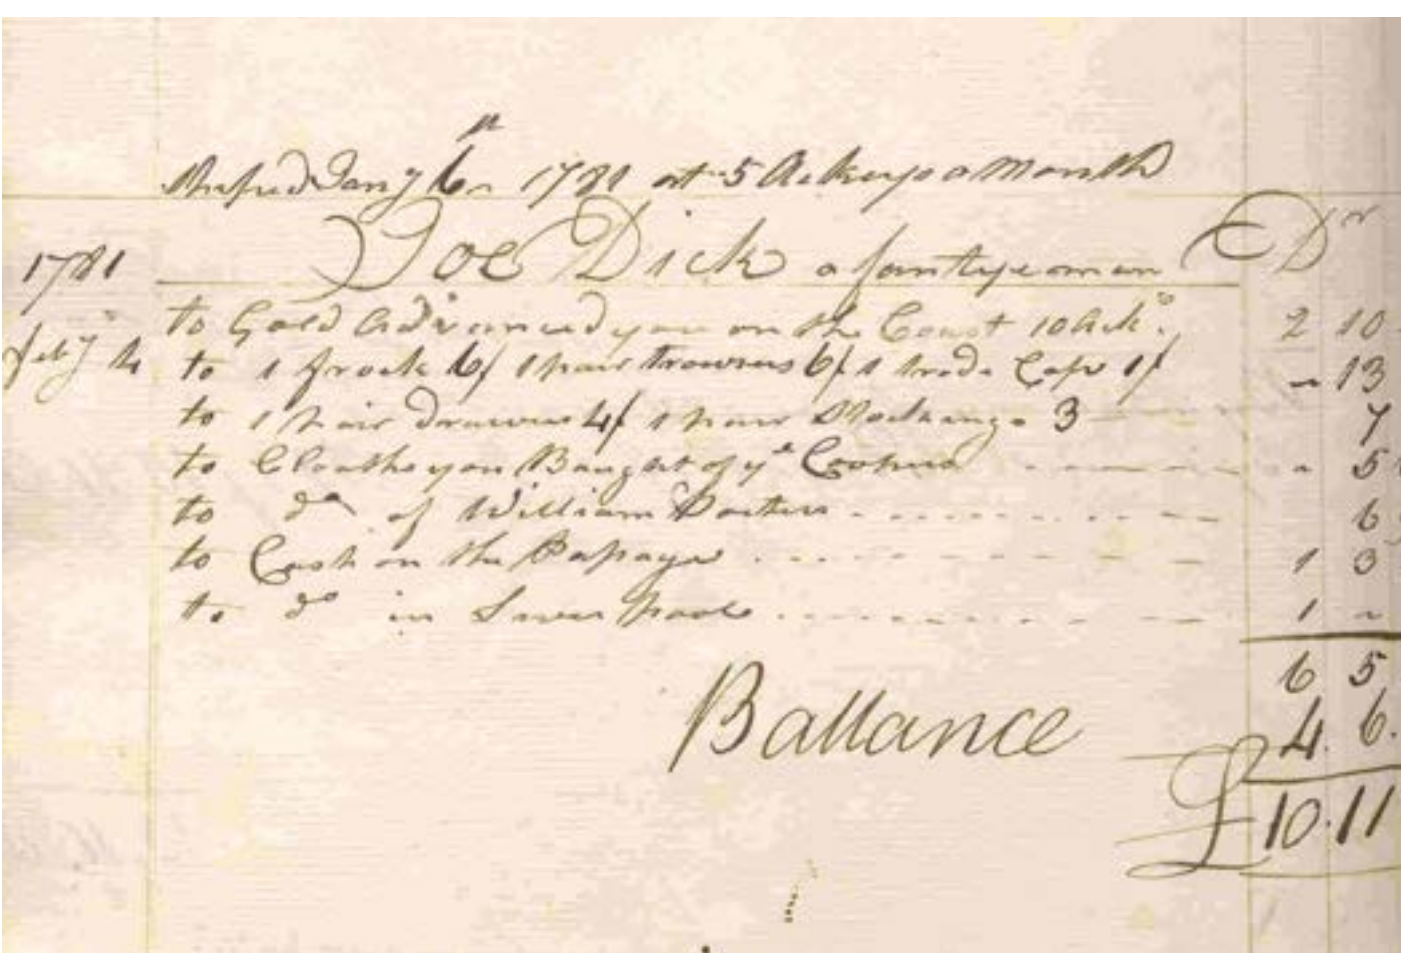 Shiped Jany 6th 1781 at 5 Ackeys a Month
1781 Joe Dick a fantyeoman Dr
to Gold Advanced you on the Coast 10 Acko. 2 10
feby 4 to 1 frock 6/ 1 pair trowsers 6/ 1 trade Cap 1/ 13
to 1 pair drawers 4/ 1 pair Stockings 3 7
to Cloaths you Baught of ye 5
to do of William Porters 6
to Cash on the Pasage 1 3
to do in Liverpool 1
6 5
Ballance 4. 6.
£ 10.11